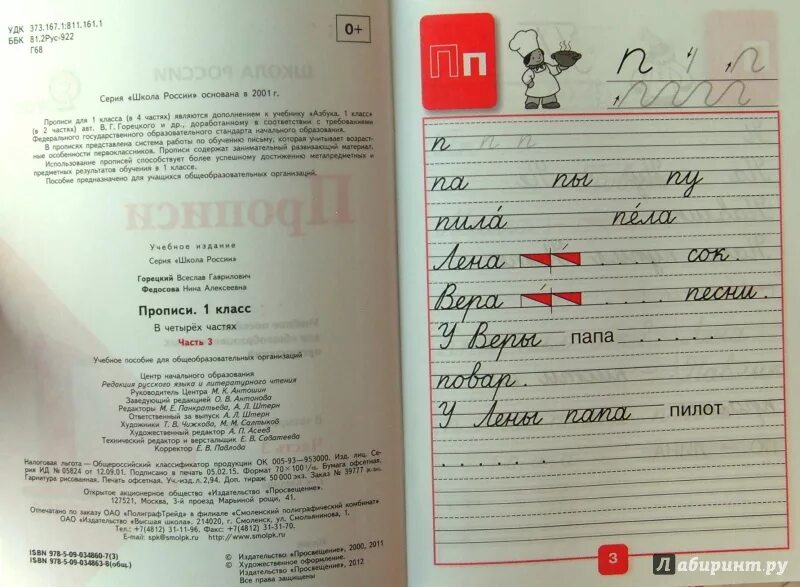 УДК 373.167.1:811.161.1
ББК 81.2Рус-922
Г68
0+
Серия «Школа России» основана в 2001 г.
Прописи для 1 класса (в 4 частях) являются дополнением к учебнику «Азбука. 1 класс»
(в 2 частях) авт. В. Г. Горецкого и др., доработанному в соответствии с требованиями
Федерального государственного образовательного стандарта начального образования.
В прописях представлена система работы по обучению письму, которая учитывает возраст-
ные особенности первоклассников. Прописи содержат занимательный развивающий материал.
Использование прописей способствует более успешному достижению метапредметных и
предметных результатов обучения в 1 классе.
Пособие предназначено для учащихся общеобразовательных организаций.
Учебное издание
Серия «Школа России»
Горецкий Всеслав Гаврилович
Федосова Нина Алексеевна
Прописи. 1 класс
В четырёх частях
Часть 3
Учебное пособие для общеобразовательных организаций
Центр начального образования
Редакция русского языка и литературного чтения
Руководитель Центра М. К. Антошин
Заведующий редакцией О. В. Антонова
Редакторы М. Е. Панкратьева, А. Л. Штерн
Ответственный за выпуск А. Л. Штерн
Художники Т. В. Чижкова, М. М. Салтыков
Художественный редактор А. П. Асеев
Технический редактор и верстальщик Е. В. Саватеева
Корректор Е. В. Павлова
Налоговая льгота — Общероссийский классификатор продукции ОК 005-93—953000. Изд. лиц. Се-
рия ИД № 05824 от 12.09.01. Подписано в печать 05.02.15. Формат 70×100 1/16. Бумага офсетная.
Гарнитура рисованная. Печать офсетная. Уч.-изд. л. 2,94. Доп. тираж 50 000 экз. Заказ № 39777
Открытое акционерное общество «Издательство «Просвещение».
127521, Москва, 3-й проезд Марьиной рощи, 41.
Отпечатано по заказу ОАО «ПолиграфТрейд» в филиале «Смоленский полиграфический комбинат»
ОАО «Издательство «Высшая школа». 214020, г. Смоленск, ул. Смольянинова, 1.
Тел.: +7(4812) 31-11-96. Факс: +7(4812) 31-31-70.
E-mail: spk@smolpk.ru http://www.smolpk.ru
ISBN 978-5-09-034860-7(3)
ISBN 978-5-09-034863-8(общ.)
© Издательство «Просвещение», 2000, 2011
© Художественное оформление.
Издательство «Просвещение», 2012
Все права защищены
Пп
п
п п п
па пы пу
пила́ пе́ла
Лена . . . . . сок.
Вера . . . . . песни.
У Веры папа . . . . . .
повар.
У Лены папа пилот
. . . . . .
3
Лабиринт.ру